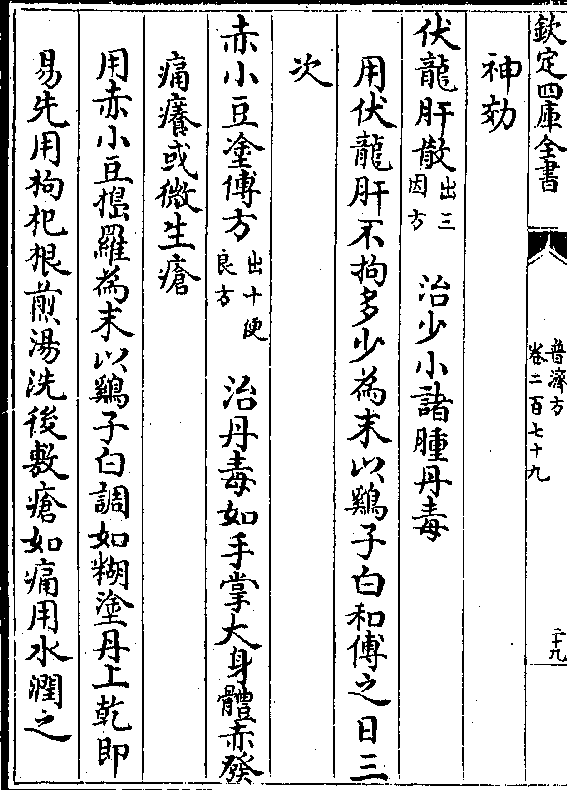 欽定四庫全書
普濟方
卷二百七十九
二十九
神効
伏龍肝散出三因方 治少小諸腫丹毒
用伏龍肝不拘多少為末以鷄子白和傅之日三
次
赤小豆塗傅方出十便良方 治丹毒如手掌大身體赤發
痛癢或微生瘡
用赤小豆搗羅為末以鷄子白調如糊塗丹上乾即
易先用枸杞根煎湯洗後敷瘡如痛用水潤之